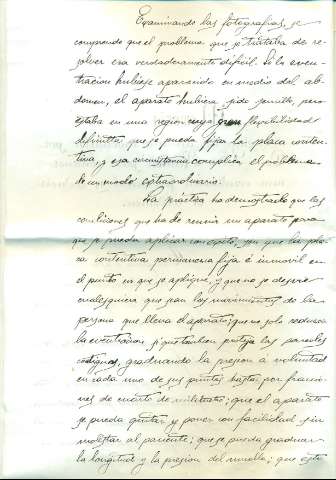 Examinando las fotografias, se
comprende que el problema que se trataba de re-
solver era verdaderamente dificil. Si la even-
tracion hubiese aparecido en medio del ab-
domen, el aparato hubiera sido sencillo, pero
estaba en una region cuya gran flexibilidad
dificulta que se pueda fijar la placa conten-
tiva, y esa circunstancia complica el problema
de un modo extraordinario.
La práctica ha demostrado que las
condiciones que ha de reunir un aparato para
que se pueda aplicar con exito, son que la pla-
ca contentiva permanezca fija é inmovil en
el punto en que se aplique, y que no se desvie
cualesquiera que sean los movimientos de la
persona que lleva el aparato; que no solo reduzca
la eventracion, y que tambien proteja las paredes
contiguas, graduando la presion á voluntad
en cada uno de sus puntos hasta por fraccio-
nes de centro de milimetro; que el aparato
se pueda quitar y poner con facilidad sin
molestar al paciente; que se pueda graduar
la longitud y la presion del muelle; que esté